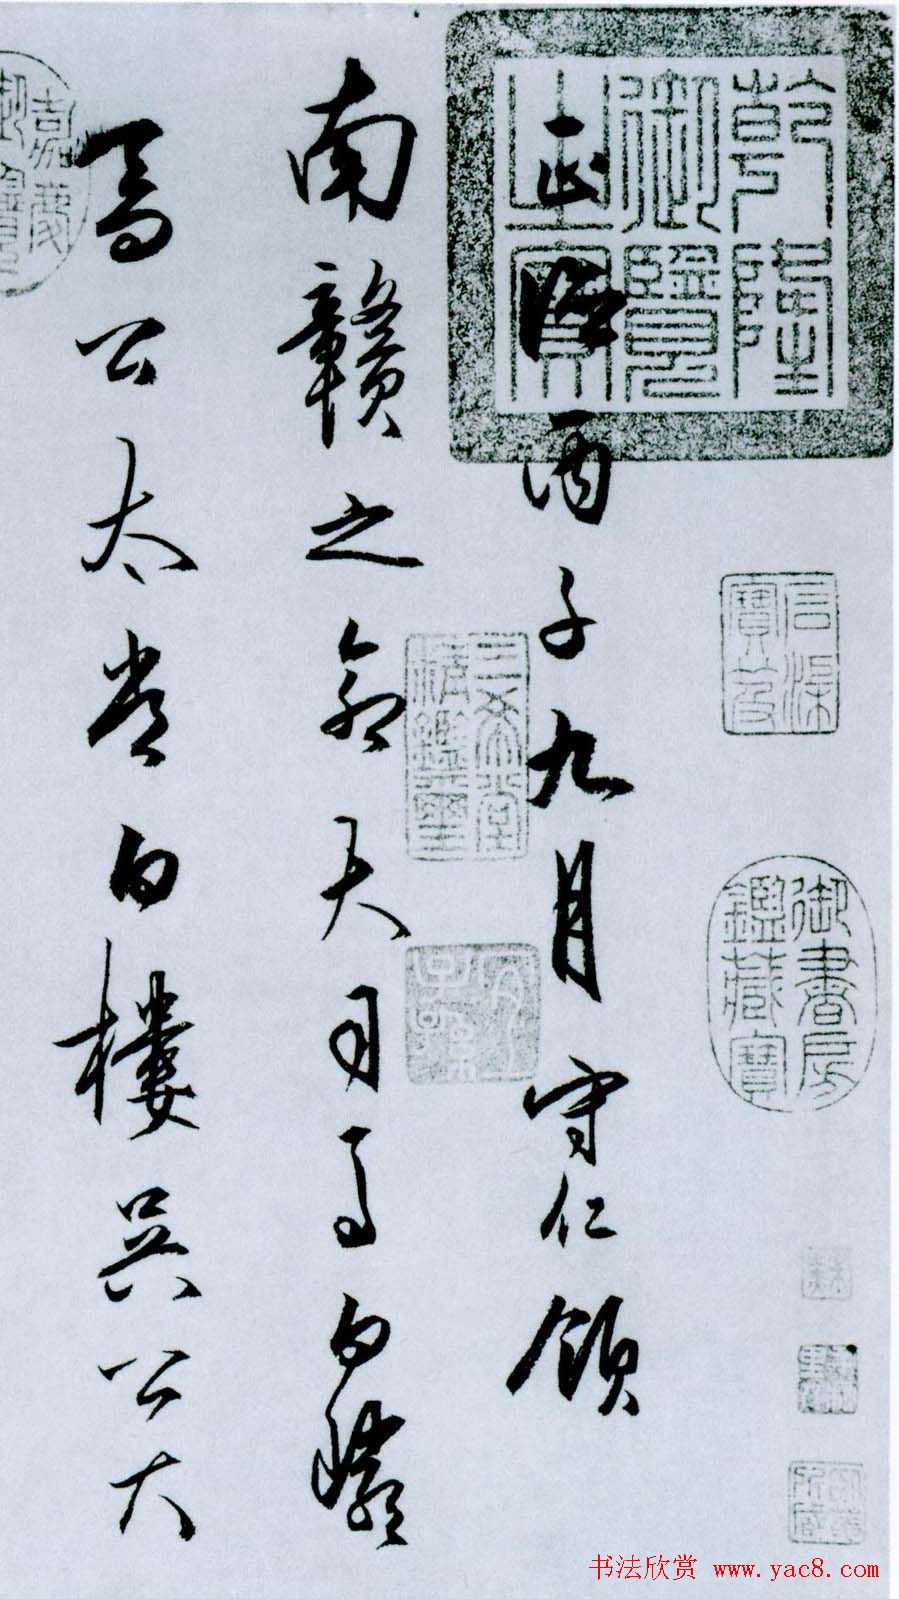 乾隆御覽之寶
石渠寶笈
御書房鑑藏寶
正德丙子九月守仁領
三希堂精鑑璽
宜子孫
南贛之命大司馬白巖
喬公太常白樓吳公大
嘉慶御覽
书法欣赏 www.yac8.com